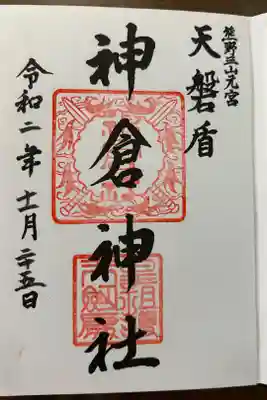 熊野三山元宮
天磐盾
神倉神社
令和二年十一月二十五日